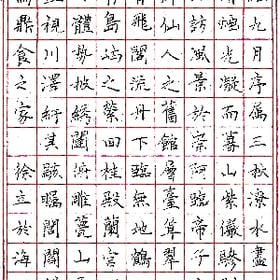 九月序屬三秋潦水盡
煙光凝而暮山紫儼驂
訪風景於崇阿臨帝子
仙人之舊館層臺聳翠
飛閣流丹下臨無地鶴
島嶼之縈回桂殿蘭宮
體勢披繡闥俯雕甍山
視川澤紆其駭矚閭閻
鳴鼎食之家徐立於海